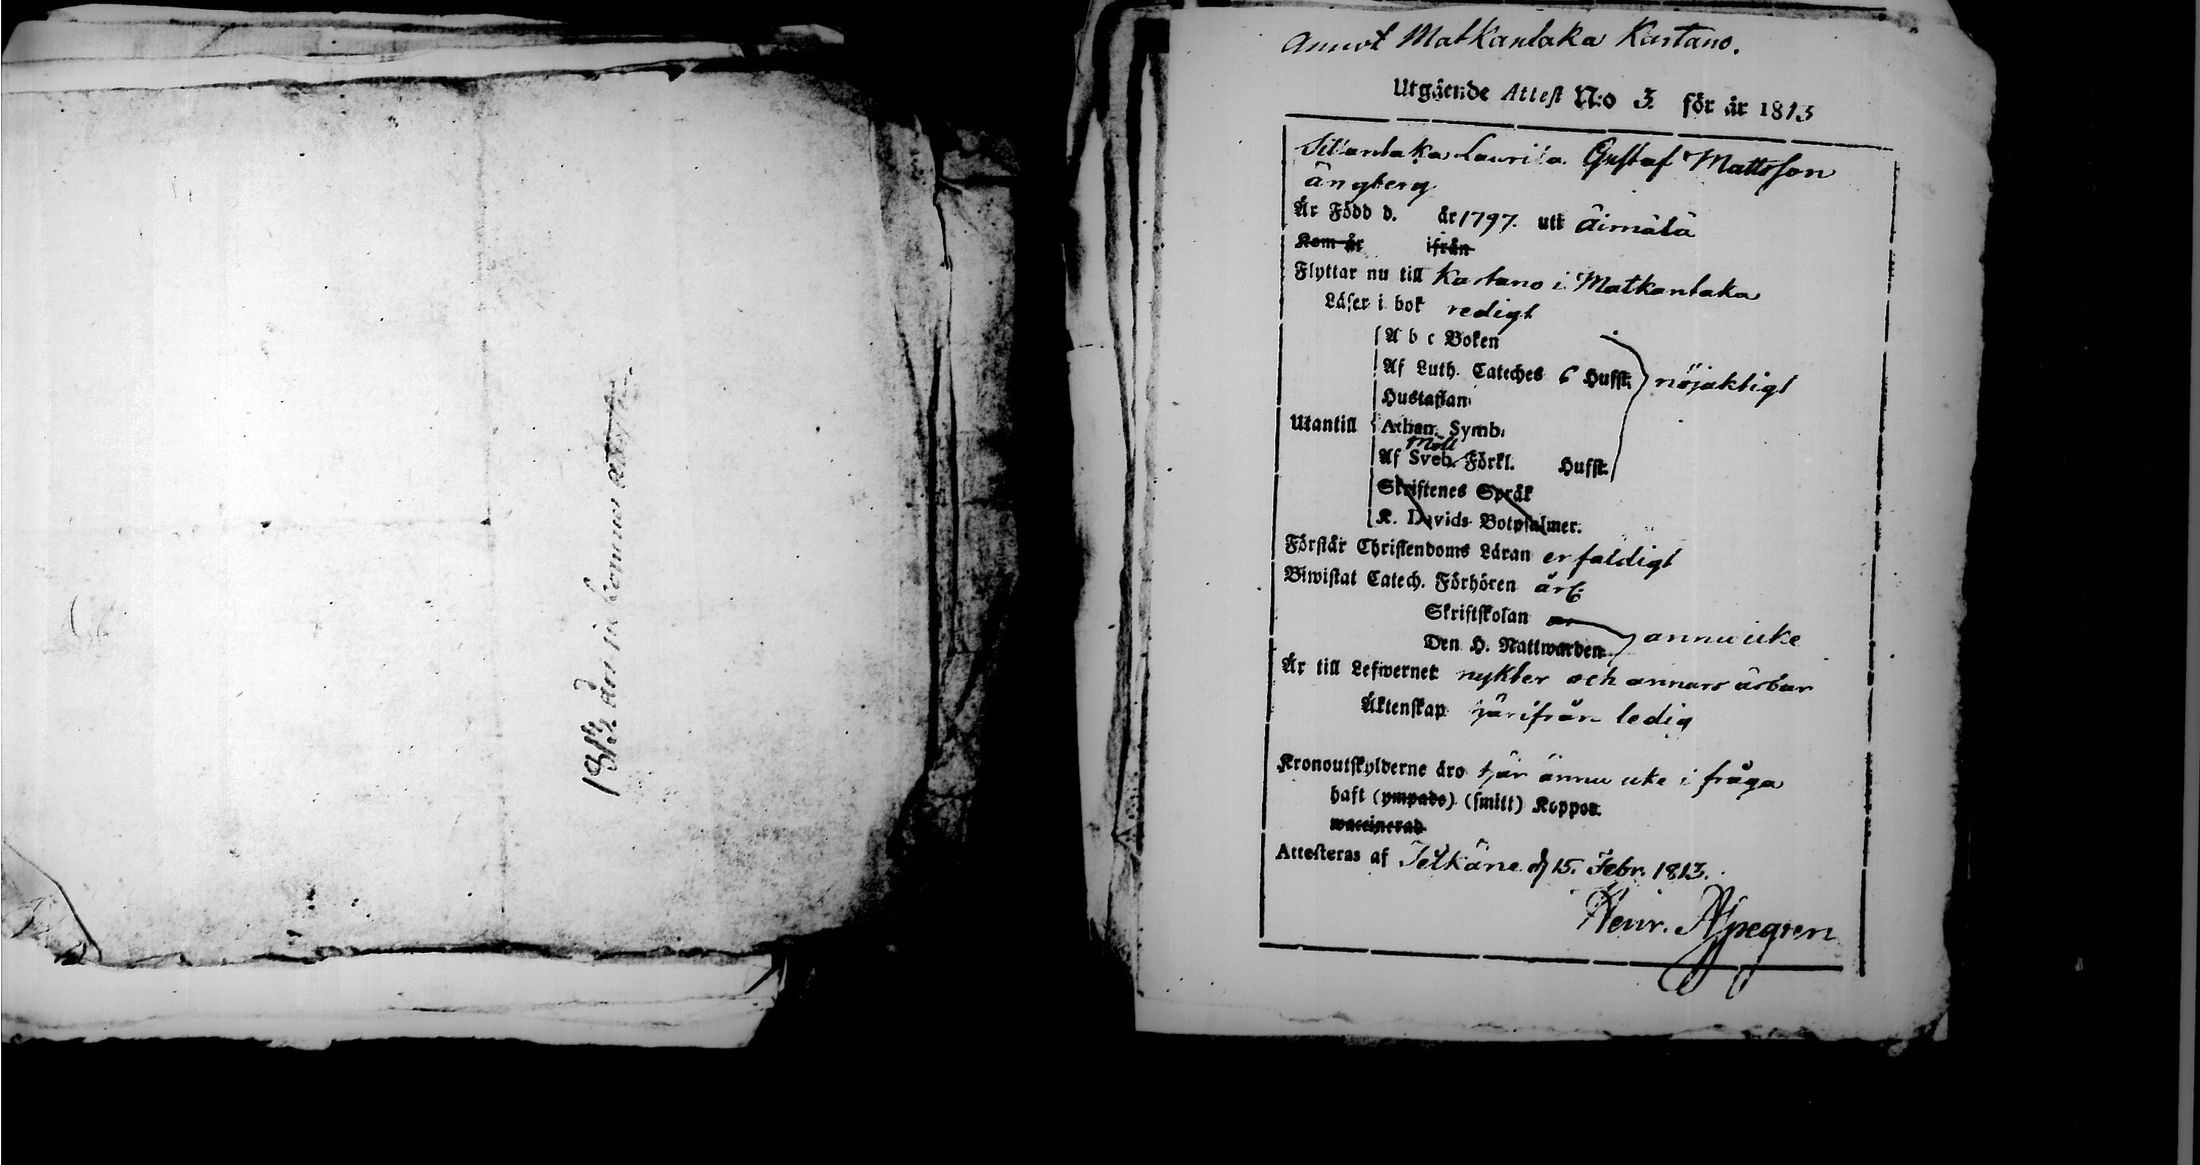 1813 års in komne attester
annot Matkanlaka Kastano.
Utgående Attest N:o 3. för år 1813
Sillanlaka Laurila Gustaf Mattsson
Ängberg
Är Född d. år 1797. utl Äimälä
Kom år ifrån
Flyttar nu till Kastano i Matkanlaka
Läser i bok redigt
A b c Boken
Af Luth. Cateches 6 Hufst. nöjaktigt
Hustaflan
Utantill Athan. Symb.
Möll
Af Sveb. Förkl. Hufst.
Skriftenes Språk
K. Davids Botpsalmer.
Förstår Christendoms Läran enfaldigt
Biwistat Catech. Förhören årl:
Skriftskolan
Den H. Nattwarden annu icke
Är till Lefwernet nykter och annars ärbar
Äktenskap härifrån ledig
Kronoutskylderne äro här ännu icke i fråga
haft (ympade) (smitt) Koppor.
waccinerad
Attesteras af Pelkäne d 15. Febr. 1813.
Henr. Alpegren